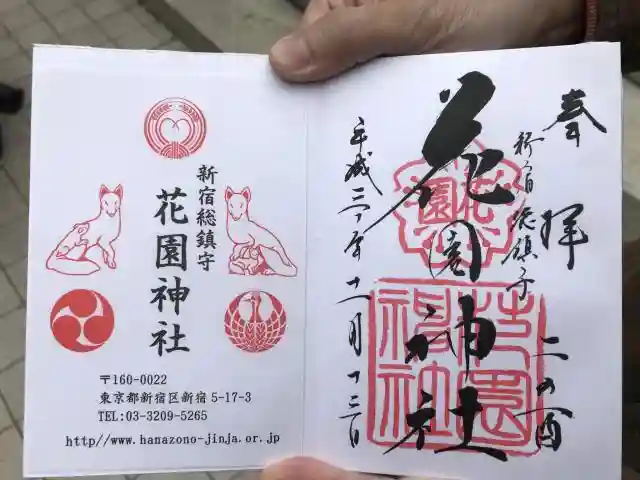 新宿総鎮守
花園神社
〒160-0022
東京都新宿区新宿5-17-3
TEL:03-3209-5265
http//www.hanazono-jinja.or.jp
奉拝
新宿総鎮守
二の酉
花園神社
花園
花園神社
平成三〇年十一月十三日